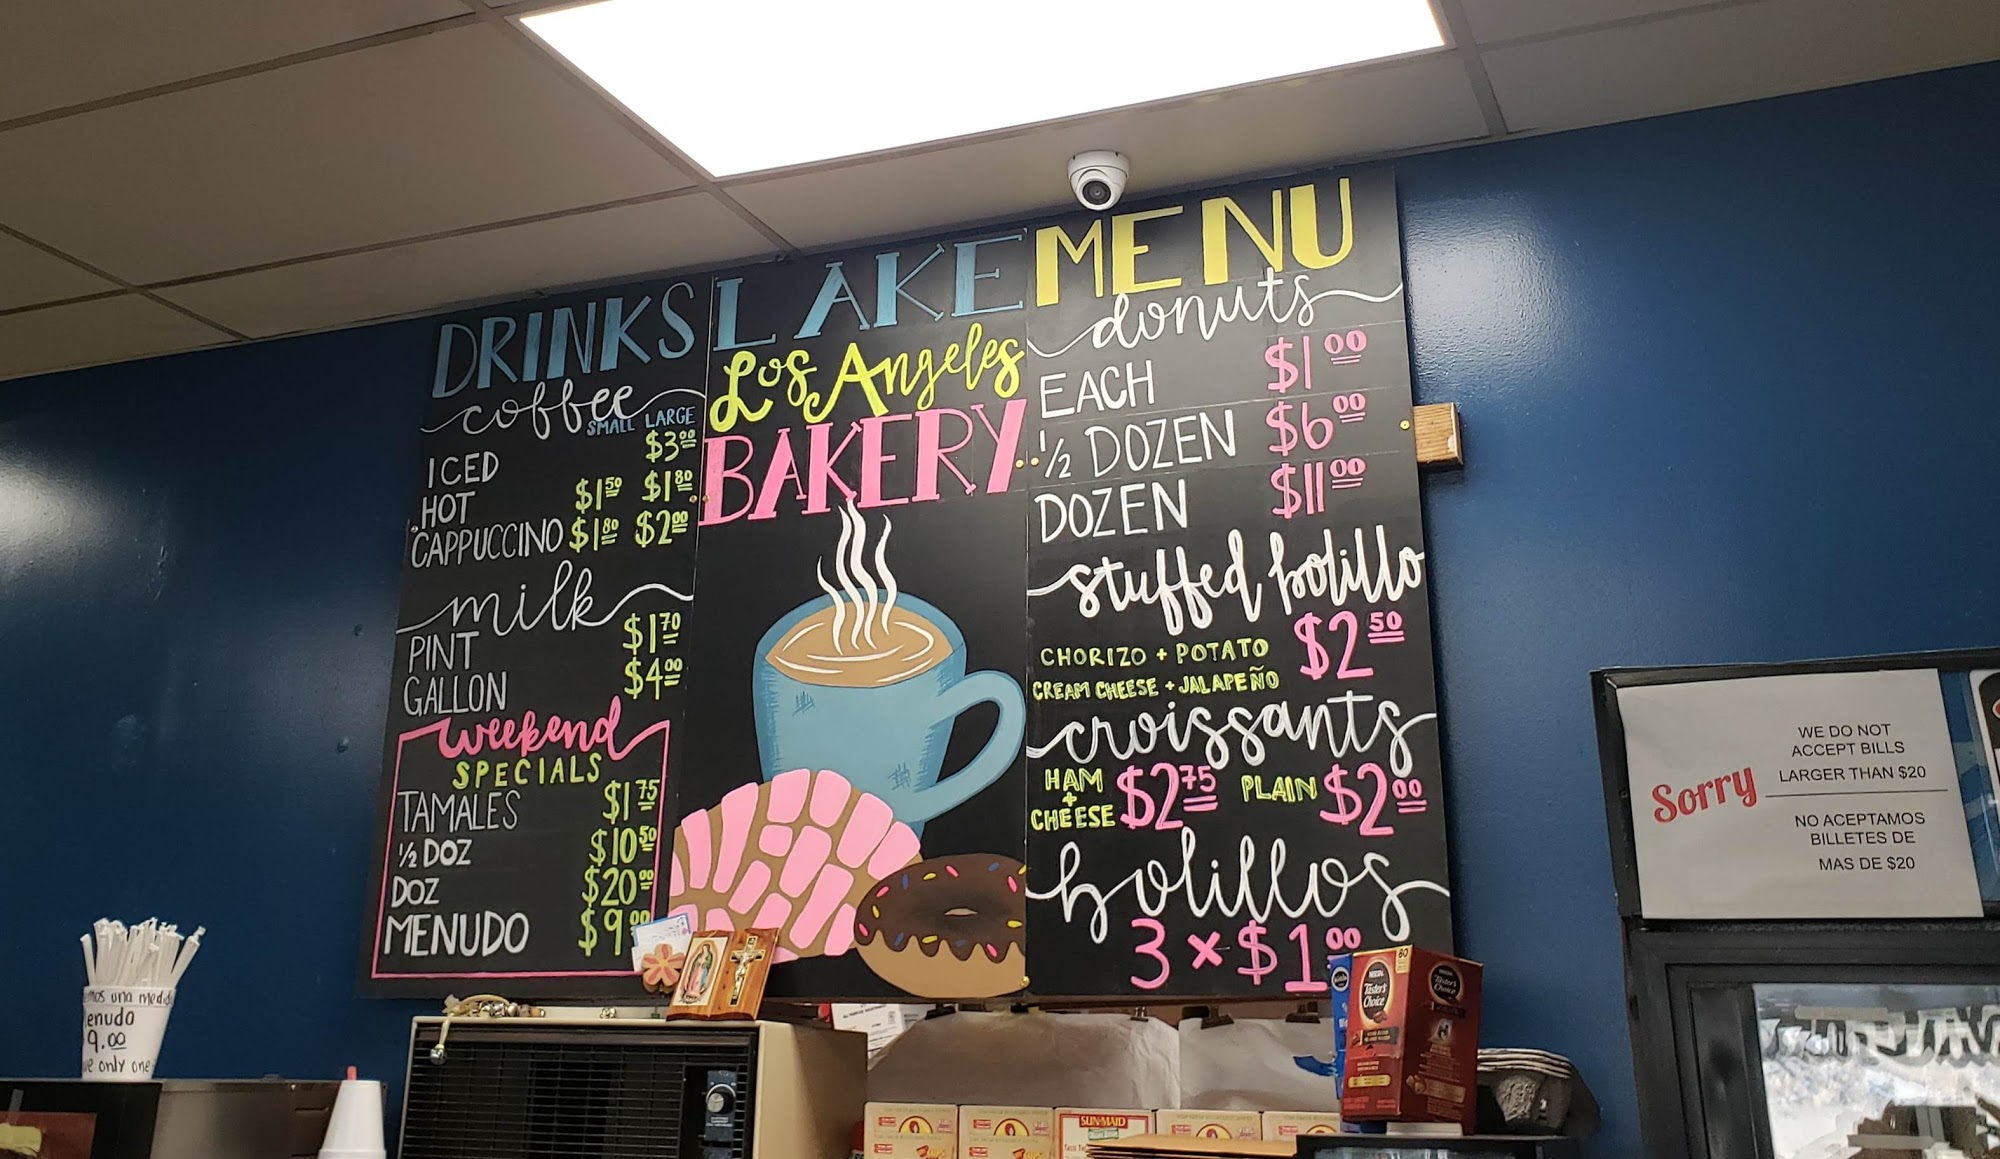 DRINKS
coffee
SMALL LARGE
ICED $3.00
HOT $1.50 $1.80
CAPPUCCINO $1.80 $2.00
milk
PINT $1.70
GALLON $4.00
weekend
SPECIALS
TAMALES $1.75
1/2 DOZ $10.50
DOZ $20.00
MENUDO $9.00
LAKE
Los Angeles
BAKERY
MENU
donuts
EACH $1.00
1/2 DOZEN $6.00
DOZEN $11.00
stuffed bolillo
CHORIZO + POTATO $2.50
CREAM CHEESE + JALAPEÑO
croissants
HAM + CHEESE $2.75 PLAIN $2.00
bolillos
3 x $1.00
Sorry
WE DO NOT
ACCEPT BILLS
LARGER THAN $20
NO ACEPTAMOS
BILLETES DE
MAS DE $20
una
enudo
9.00
only one
NESCAFÉ
Taster's
Choice
80
Taster's
Choice
SUN-MAID